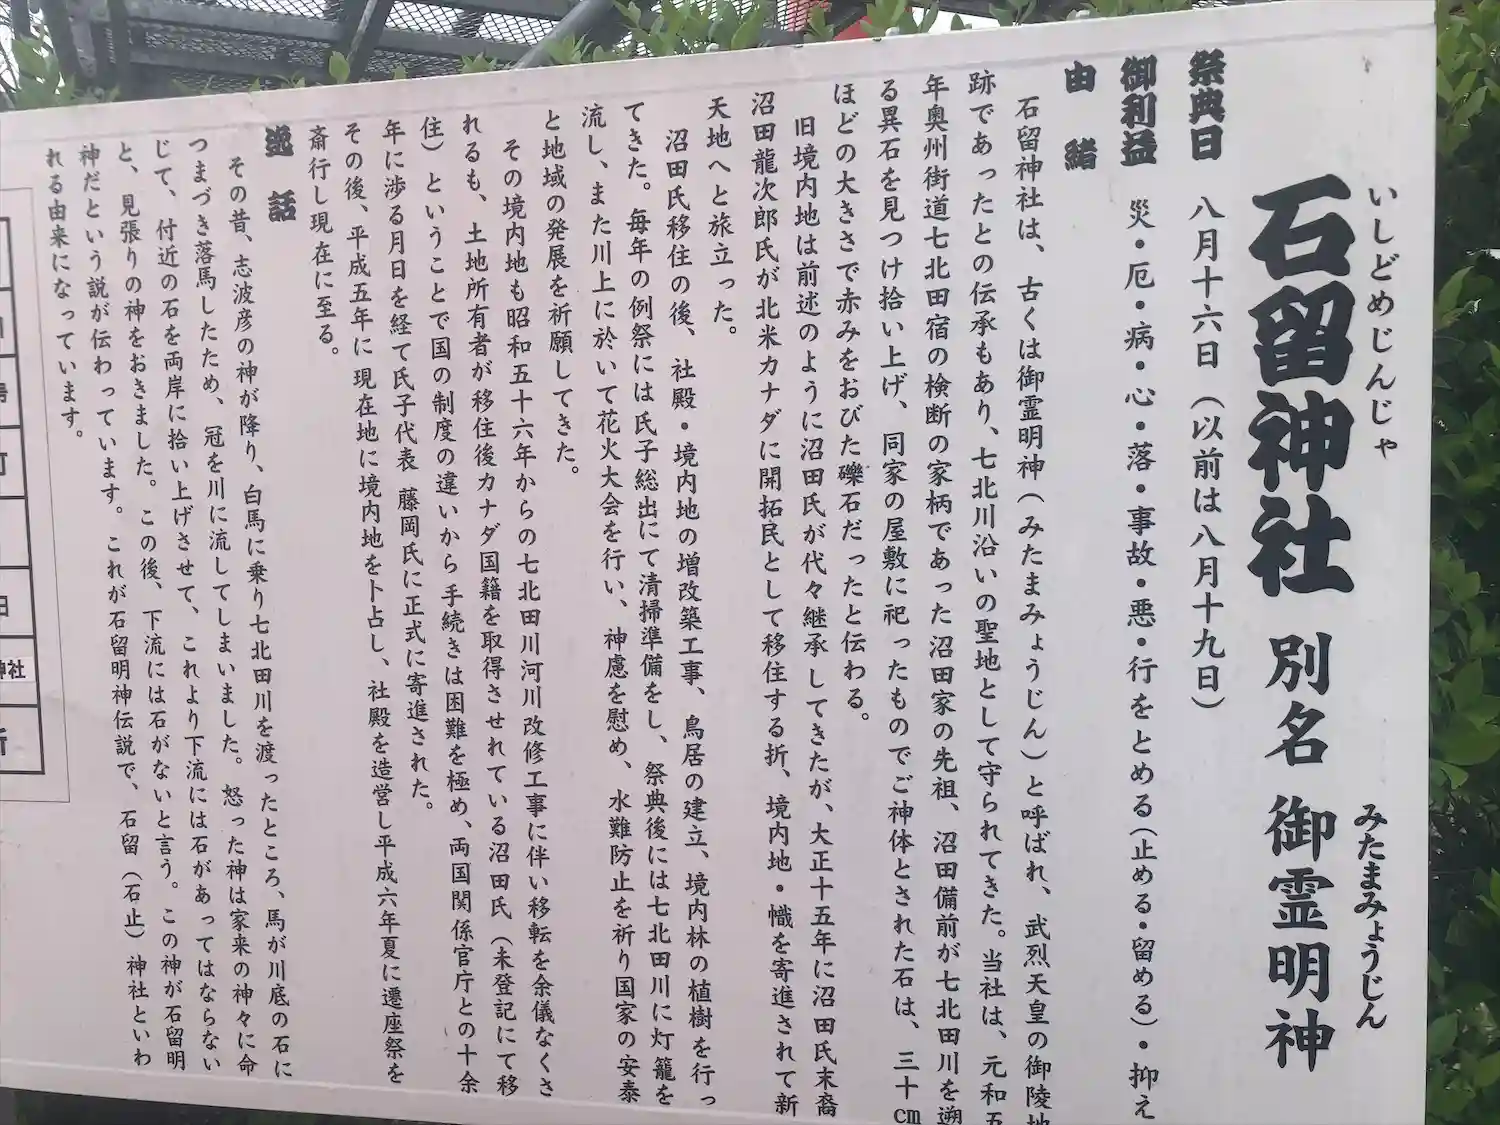 いしどめじんじゃ
みたまみょうじん
石留神社 別名 御霊明神
祭典日 八月十六日(以前は八月十九日)
御利益 災・厄・病・心・落・事故・悪・行をとめる(止める・留める)・抑え
由緒
石留神社は、古くは御霊明神(みたまみょうじん)と呼ばれ、武烈天皇の御陵地
跡であったとの伝承もあり、七北川沿いの聖地として守られてきた。当社は、元和五
年奥州街道七北田宿の検断の家柄であった沼田家の先祖、沼田備前が七北田川を遡
る異石を見つけ拾い上げ、同家の屋敷に祀ったものでご神体とされた石は、三十cm
ほどの大きさで赤みをおびた礫石だったと伝わる。
旧境内地は前述のように沼田氏が代々継承してきたが、大正十五年に沼田氏末裔
沼田龍次郎氏が北米カナダに開拓民として移住する折、境内地・幟を寄進されて新
天地へと旅立った。
沼田氏移住の後、社殿・境内地の増改築工事、鳥居の建立、境内林の植樹を行っ
てきた。毎年の例祭には氏子総出にて清掃準備をし、祭典後には七北田川に灯籠を
流し、また川上に於いて花火大会を行い、神慮を慰め、水難防止を祈り国家の安泰
と地域の発展を祈願してきた。
その境内地も昭和五十六年からの七北田川河川改修工事に伴い移転を余儀なくさ
れるも、土地所有者が移住後カナダ国籍を取得させれている沼田氏(未登記にて移
住)ということで国の制度の違いから手続きは困難を極め、両国関係官庁との十余
年に渉る月日を経て氏子代表 藤岡氏に正式に寄進された。
その後、平成五年に現在地に境内地を卜占し、社殿を造営し平成六年夏に遷座祭を
斎行し現在に至る。
逸話
その昔、志波彦の神が降り、白馬に乗り七北田川を渡ったところ、馬が川底の石に
つまづき落馬したため、冠を川に流してしまいました。怒った神は家来の神々に命
じて、付近の石を両岸に拾い上げさせて、これより下流には石があってはならない
と、見張りの神をおきました。この後、下流には石がないと言う。この神が石留明
神だという説が伝わっています。これが石留明神伝説で、石留(石止)神社といわ
れる由来になっています。
神社